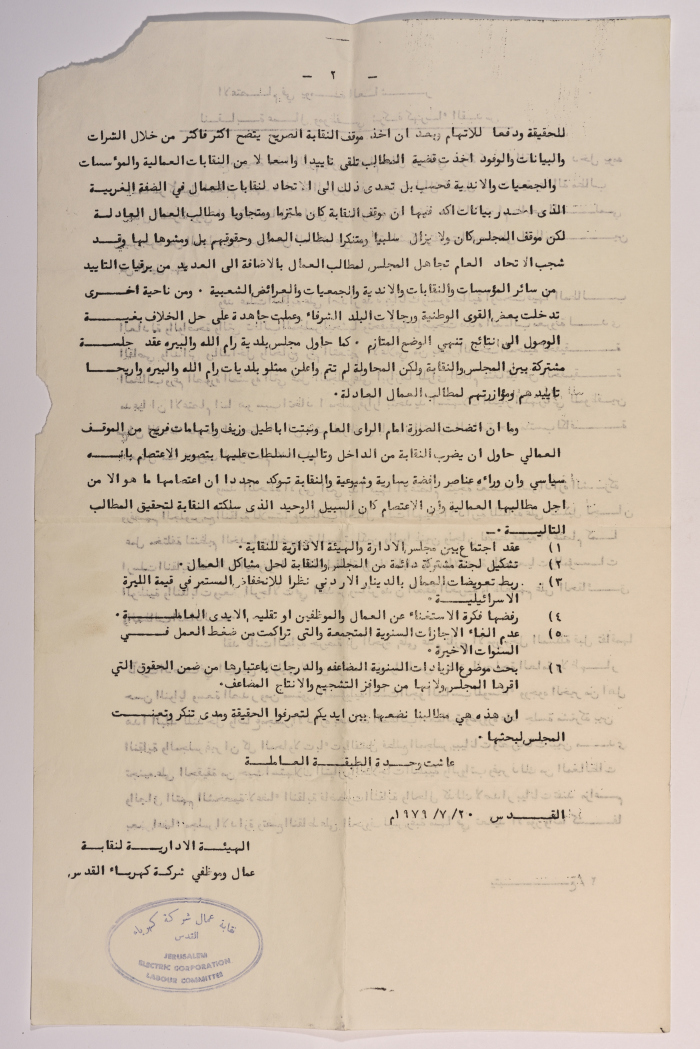 - ٢ -
للحقيقة ودفعا للاتهام وبعد ان اخذ موقف النقابة الصريح يتضح اكثر فاكثر من خلال النشرات
والبيانات والوفود اخذت قضية المطالب تلقى تاييدا واسعا لا من النقابات العمالية والمؤسسات
والجمعيات والاندية فحسب بل تعدى ذلك الى الاتحاد لنقابات العمال في الضفة الغربية
الذى اصدر بيانات اكد فيها ان موقف النقابة كان ملتزما ومتجاوبا ومطالب العمال العادلة
لكن موقف المجلس كان ولا يزال سلبيا ومتنكرا لمطالب العمال وحقوقهم بل ومشوها لها وقد
شجب الاتحاد العام تجاهل المجلس لمطالب العمال بالاضافة الى العديد من برقيات التاييد
من سائر المؤسسات والنقابات والاندية والجمعيات والعرائض الشعبية ٠ ومن ناحية اخرى
تدخلت بعض القوى الوطنية ورجالات البلد الشرفاء وعملت جاهدة على حل الخلاف بغية
الوصول الى نتائج تنهي الوضع المتازم ٠ كما حاول مجلس بلدية رام الله والبيره عقد جلسة
مشتركة بين المجلس والنقابة ولكن المحاولة لم تتم واعلن ممثلو بلديات رام الله والبيره واريحا
تاييدهم ومؤازرتهم لمطالب العمال العادلة ٠
وما ان اتضحت الصورة امام الراى العام وثبتت اباطيل وزيف واتهامات فريج من الموقف
العمالي حاول ان يضرب النقابة من الداخل وتاليب السلطات عليها بتصوير الاعتصام بانه
سياسي وان وراءه عناصر رافضة يسارية وشيوعية والنقابة تؤكد مجددا ان اعتصامها ما هو الا من
اجل مطالبها العمالية وان الاعتصام كان السبيل الوحيد الذى سلكته النقابة لتحقيق المطالب
التالية ٠-
١) عقد اجتماع بين مجلس الادارة والهيئة الادارية للنقابة ٠
٢) تشكيل لجنة مشتركة دائمة من المجلس والنقابة لحل مشاكل العمال ٠
٣) ربط تعويضات العمال بالدينار الاردني نظرا للانخفاض المستمر في قيمة الليرة
الاسرائيلية ٠
٤) رفضها فكرة الاستغناء عن العمال والموظفين او تقليص الايدى العاملة ٠
٥) عدم الغاء الاجازات السنوية المتجمعة والتى تراكمت من ضغط العمل في
السنوات الاخيرة ٠
٦) بحث موضوع الزيادات السنوية المضاعفه والدرجات باعتبارها من ضمن الحقوق التي
اقرها المجلس ولانها من حوافز التشجيع والانتاج المضاعف٠
ان هذه هي مطالبنا نضعها بين ايديكم لتعرفوا الحقيقة ومدى تنكر وتعنت
المجلس لبحثها ٠
عاشت وحدة الطبقة العاملة
القدس ٢٠/٧/١٩٧٩م
الهيئة الادارية لنقابة
عمال وموظفي شركة كهرباء القدس
نقابة عمال شركة كهرباء
القدس
JERUSALEM
ELECTRIC CORPORATION
LABOUR COMMITTEE